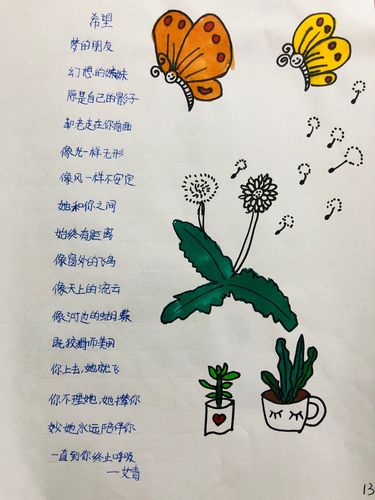 希望
梦的朋友
幻想的姊妹
原是自己的影子
却老走在你前面
像光一样无形
像风一样不安定
她和你之间
始终有距离
像窗外的飞鸟
像天上的流云
像河边的蝴蝶
既狡猾而美丽
你上去,她就飞
你不理她,她撵你
她永远陪伴你
一直到你终止呼吸
—艾青
13